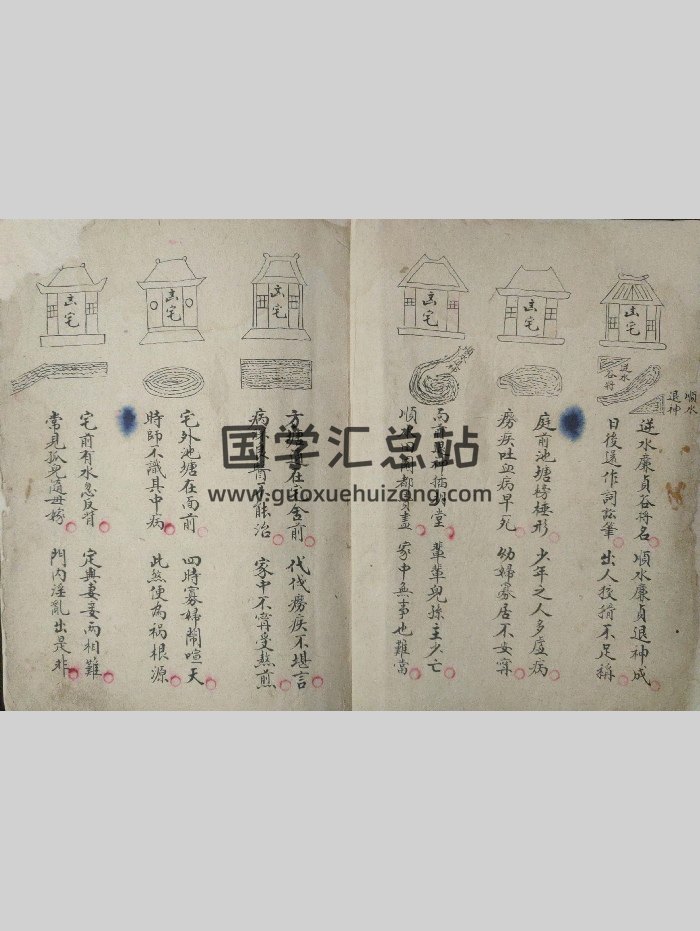 玄宅
玄宅
玄宅
玄宅
玄宅
玄宅
順水退神
逆水谷将
逆水廉貞谷将名 順水廉貞退神成
日後還作詞訟筆 出人狡猾不足稱
庭前池塘棒槌形 少年之人多虛病
癆疾吐血病早死 幼婦寡居不安寧
而前 神插明堂 輩輩兒孫主少亡
順 田園都賣盡 家中無事也難當
方塘 在 舍前 代代癆疾不堪言
病 能治 家中不寧受熬煎
宅外池塘在面前 四時寡婦鬧喧天
時師不識其中病 此煞便為祸根源
宅前有水忽反背 定與妻妾兩相難
常見孤兒隨母嫁 門內淫亂出是非
国学汇总站
www.guoxuehuizong.com